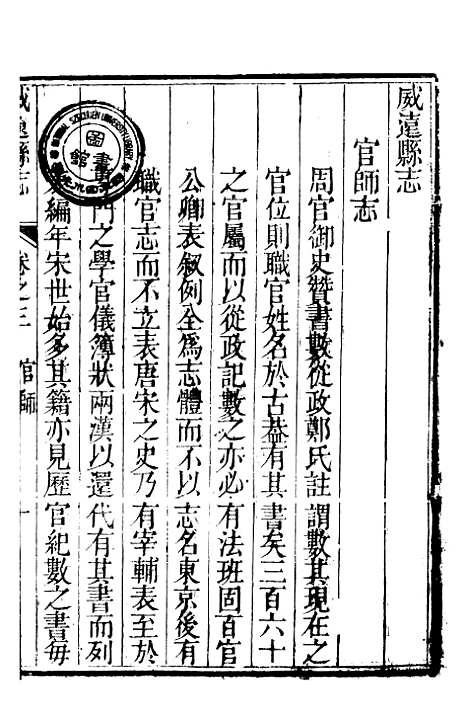 威遠縣志
官師志
周官御史贊書數從政鄭氏註謂數其現在之
官位則職官姓名於古葢有其書矣三百六十
之官屬而以從政記數之亦必有法班固百官
公卿表叙例全爲志體而不以志名東京後有
職官志而不立表唐宋之史乃有宰輔表至於
門之學官儀簿狀兩漢以還代有其書而列
編年宋世始多其籍亦見歷官紀數之書每
威遠縣志
卷之三
官師
一
圖書館
SZECHUEN UNIVERSITY LIBRARY